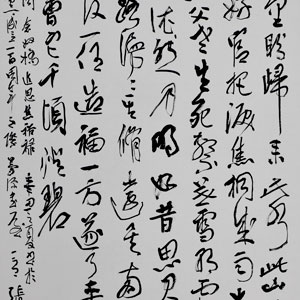 里盼归来此水此山
好官把泪焦桐成雨
父老生死系暮雪朝霜
依然月明如昔思君
路漫漫其修远矣两
一任造福一方遂了平
会它千顷澄碧
念奴娇追思焦裕禄
一百周年之际